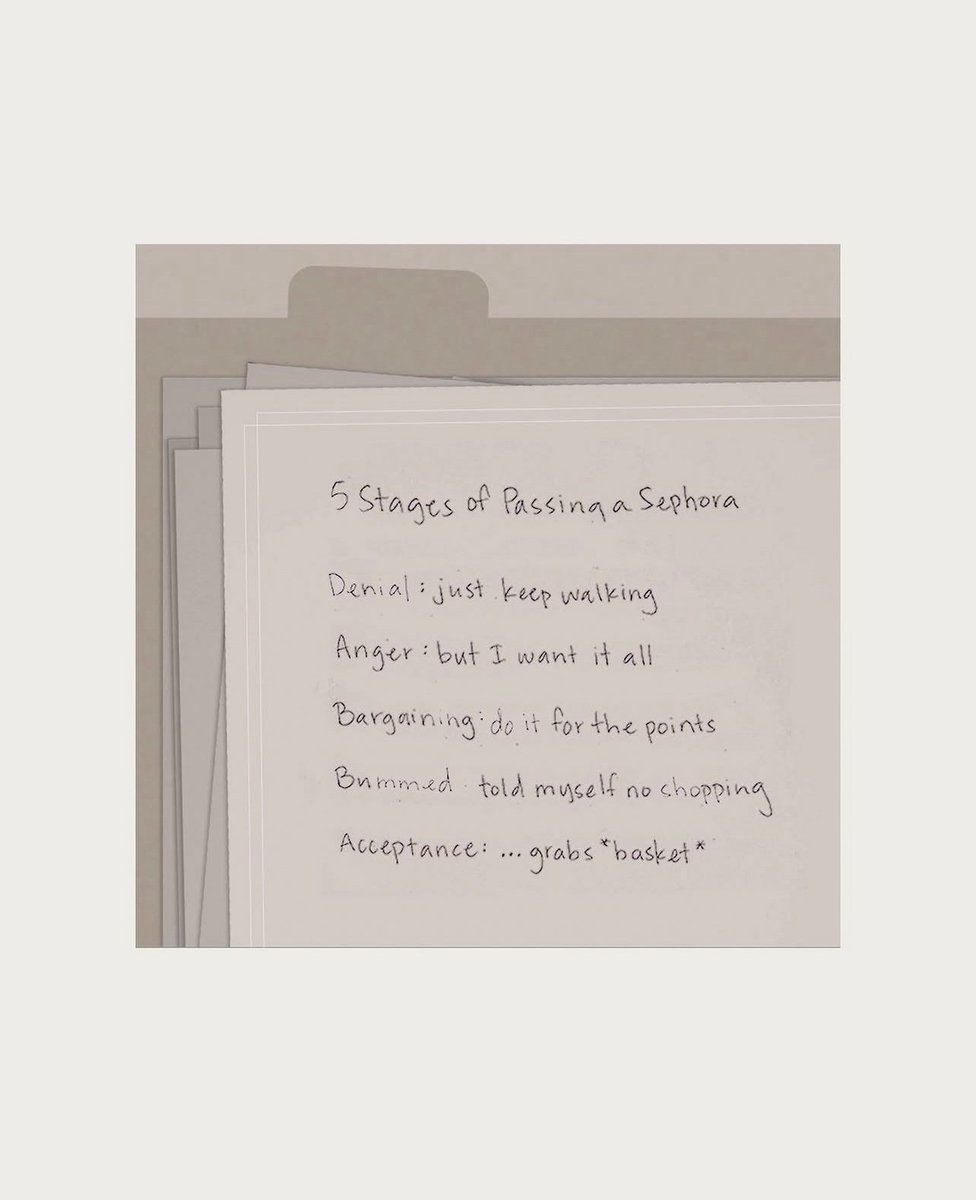 5 Stages of Passing a Sephora
Denial: just keep walking
Anger: but I want it all
Bargaining: do it for the points
Bummed: told myself no shopping
Acceptance: ...grabs *basket*